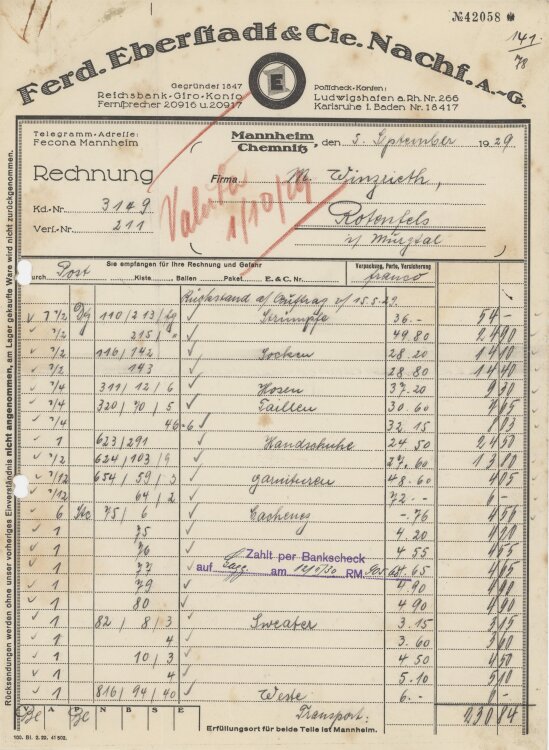 №42058
141
78
Ferd. Eberstadt & Cie. Nachf. A.-G.
Gegründet 1847
Reichsbank-Giro-Konto
Fernsprecher 20916 u. 20917
E
Postscheck-Konten:
Ludwigshafen a. Rh. Nr. 266
Karlsruhe i. Baden Nr. 18417
Telegramm-Adresse:
Fecona Mannheim
Mannheim
Chemnitz, den 5. September 1929
Rechnung
Firma M. Winzrieth,
Kd.-Nr. 3149
Rotenfels
Verk.-Nr. 211
Valuta
1/10/29
Sie empfangen für Ihre Rechnung und Gefahr
Durch Post Kiste Ballen Paket E. & C. Nr.
Verpackung, Porto, Versicherung
franco
Rückstand a/ Auftrag v/ 15.5.29.
110/213/ Strümpfe 36.- 54 -
1/2 215/ " 49.80 24 90
1/2 116/142 Socken 28.20 14 10
1/2 143 28.80 14 40
1/4 311/12/6 Hosen 37.20 9 30
1/4 320/70/5 Taillen 30.60 7 65
1/4 46-6 32.15 8 03
1 623/291 Handschuhe 24 50 24 50
1/2 624/103/9 27.60 13 80
1/12 654/59/3 Garnituren 48.60 4 05
1/12 64/2 72.- 6 -
6 75/6 Cachenez -.76 4 56
1 75 4.20 4 20
1 76 4 55 4 55
Zahlt per Bankscheck
auf am RM.
1 77 4 65
1 79 4 90 4 90
1 80 4 90 4 90
1 82/8/3 Sweater 3.15
1 4 3.60 3 60
1 10/3 4 50 4 50
1 4 5.10 5 10
1 816/94/40 Weste 6.- 6 -
V A P N B S E
Transport: 230 84
Erfüllungsort für beide Teile ist Mannheim.
100. Bl. 2. 29. 41502.
Rücksendungen werden ohne unser vorheriges Einverständnis nicht angenommen, am Lager gekaufte Ware wird nicht zurückgenommen.